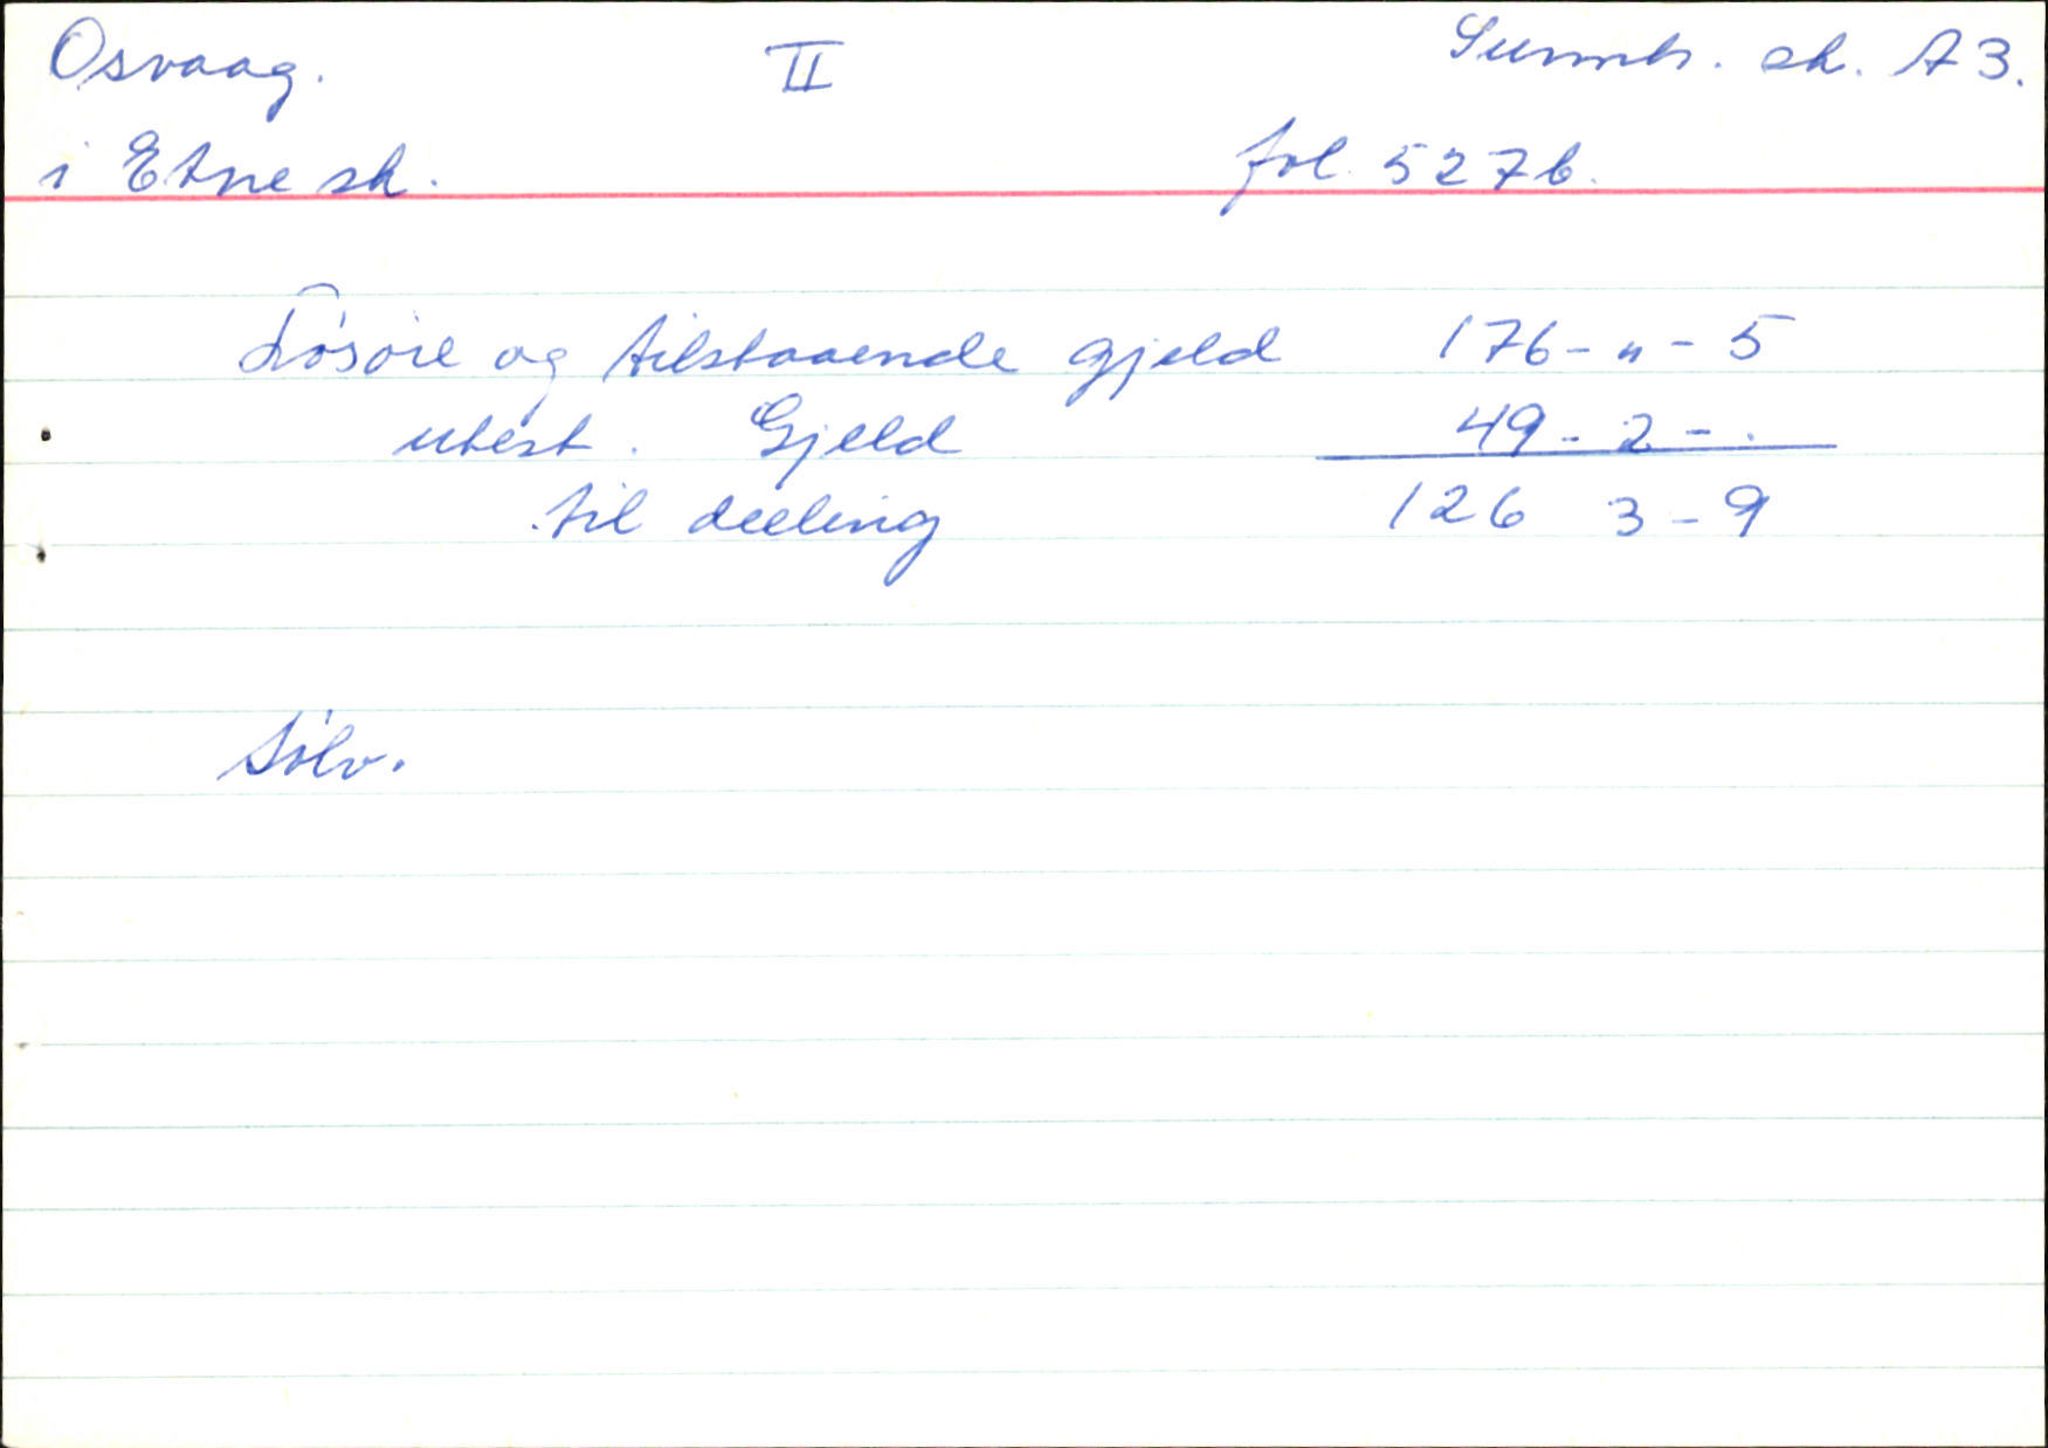 Osvaag. II Sunnh. sk. A 3.
i Etne sk. fol. 527b.
Løsøie og tilstaaende gjeld 176 - " - 5
utest. Gjeld 49 - 2 - .
til deeling 126 3 - 9
Sølv.